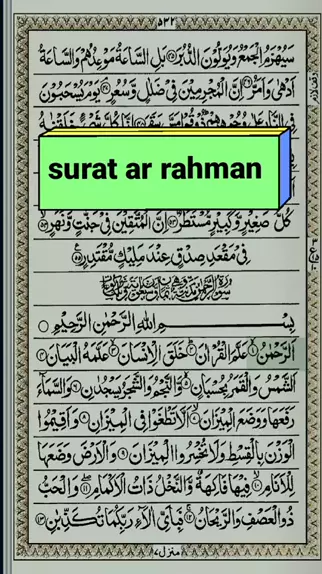 ۵۳۲
سَيُهْزَمُ الْجَمْعُ وَيُوَلُّوْنَ الدُّبُرَ ﴿۴۵﴾ بَلِ السَّاعَةُ مَوْعِدُهُمْ وَالسَّاعَةُ
اَدْهٰى وَاَمَرُّ ﴿۴۶﴾ اِنَّ الْمُجْرِمِيْنَ فِيْ ضَلٰلٍ وَّسُعُرٍ ﴿۴۷﴾ يَوْمَ يُسْحَبُوْنَ
فِي النَّارِ عَلٰى وُجُوْهِهِمْ ذُوْقُوْا مَسَّ سَقَرَ ﴿۴۸﴾ اِنَّا كُلَّ شَيْءٍ خَلَقْنٰهُ
surat ar rahman
كُلُّ صَغِيْرٍ وَّكَبِيْرٍ مُّسْتَطَرٌ ﴿۵۳﴾ اِنَّ الْمُتَّقِيْنَ فِيْ جَنّٰتٍ وَّنَهَرٍ ﴿۵۴﴾
فِيْ مَقْعَدِ صِدْقٍ عِنْدَ مَلِيْكٍ مُّقْتَدِرٍ ﴿۵۵﴾
بِسْمِ اللهِ الرَّحْمٰنِ الرَّحِيْمِ
اَلرَّحْمٰنُ ﴿۱﴾ عَلَّمَ الْقُرْاٰنَ ﴿۲﴾ خَلَقَ الْاِنْسَانَ ﴿۳﴾ عَلَّمَهُ الْبَيَانَ ﴿۴﴾
اَلشَّمْسُ وَالْقَمَرُ بِحُسْبَانٍ ﴿۵﴾ وَّالنَّجْمُ وَالشَّجَرُ يَسْجُدٰنِ ﴿۶﴾ وَالسَّمَآءَ
رَفَعَهَا وَوَضَعَ الْمِيْزَانَ ﴿۷﴾ اَلَّا تَطْغَوْا فِي الْمِيْزَانِ ﴿۸﴾ وَاَقِيْمُوا
الْوَزْنَ بِالْقِسْطِ وَلَا تُخْسِرُوا الْمِيْزَانَ ﴿۹﴾ وَالْاَرْضَ وَضَعَهَا
لِلْاَنَامِ ﴿۱۰﴾ فِيْهَا فَاكِهَةٌ وَّالنَّخْلُ ذَاتُ الْاَكْمَامِ ﴿۱۱﴾ وَالْحَبُّ
ذُو الْعَصْفِ وَالرَّيْحَانُ ﴿۱۲﴾ فَبِاَيِّ اٰلَآءِ رَبِّكُمَا تُكَذِّبٰنِ ﴿۱۳﴾
منزل۷